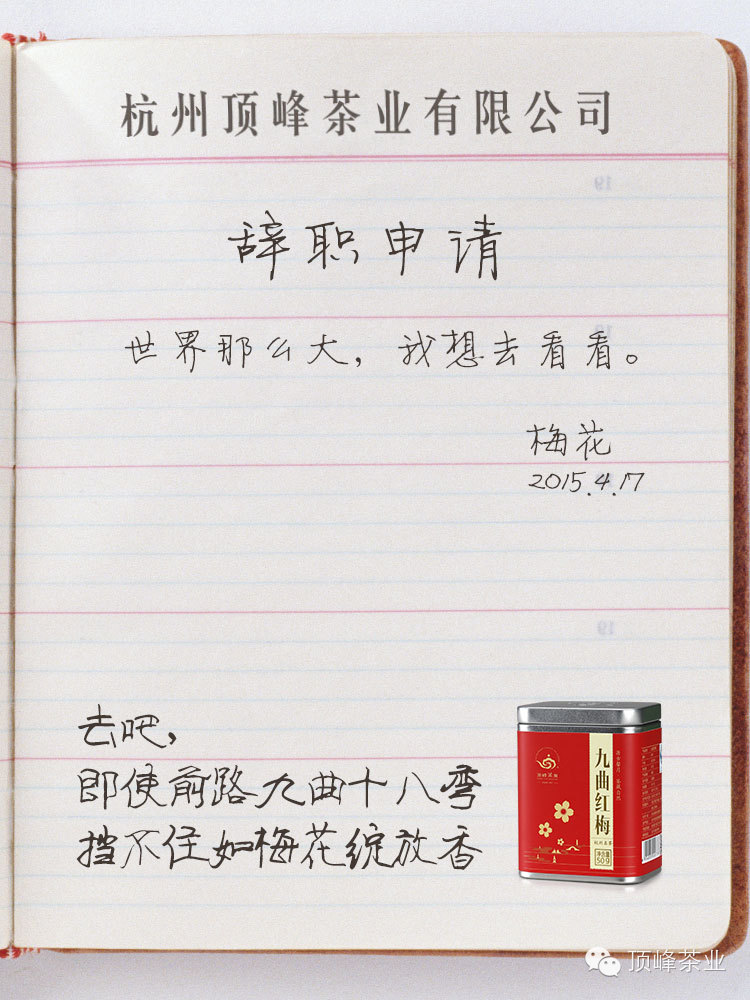 杭州顶峰茶业有限公司
辞职申请
世界那么大，我想去看看。
梅花
2015.4.17
去吧，
即使前路九曲十八弯
挡不住如梅花绽放香
顶峰茶业
九曲红梅
杭州名茶
净含量
50g
顶峰茶业